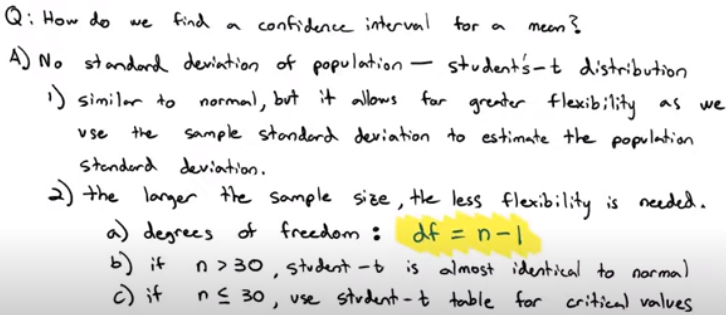 Q: How do we find a confidence interval for a mean?
A) No standard deviation of population — student's-t distribution
1) similar to normal, but it allows for greater flexibility as we
use the sample standard deviation to estimate the population
standard deviation.
2) the larger the sample size, the less flexibility is needed.
a) degrees of freedom: df = n-1
b) if n > 30, student-t is almost identical to normal
c) if n ≤ 30, use student-t table for critical values